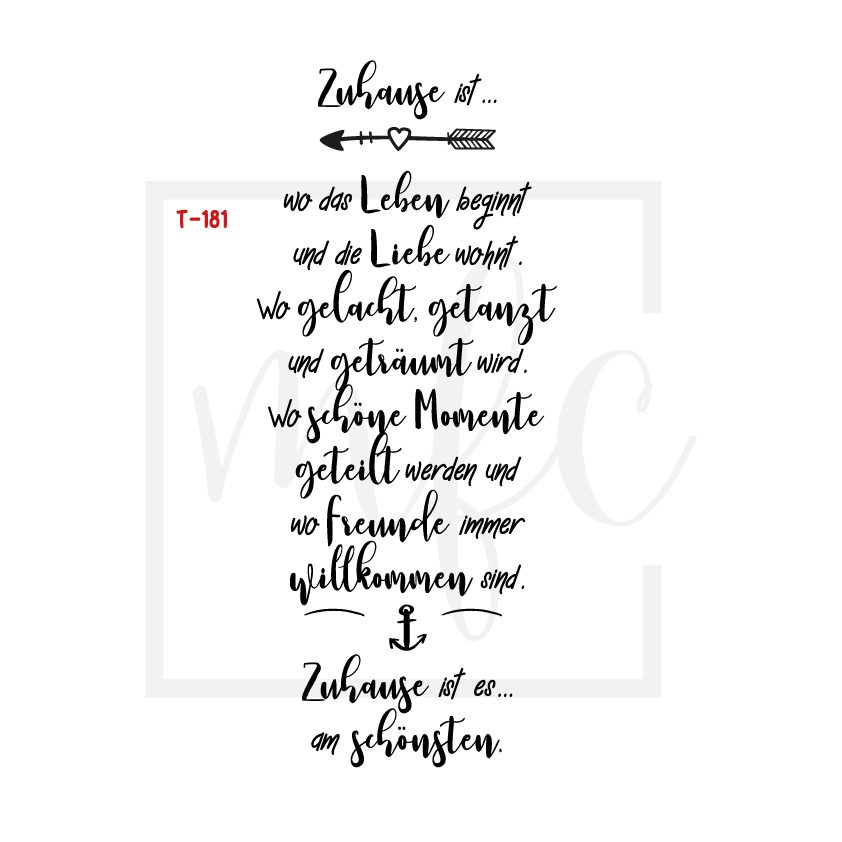 Zuhause ist...
T-181
wo das Leben beginnt
und die Liebe wohnt.
Wo gelacht, getanzt
und geträumt wird.
Wo schöne Momente
geteilt werden und
wo Freunde immer
willkommen sind.
Zuhause ist es...
am schönsten.
mfc